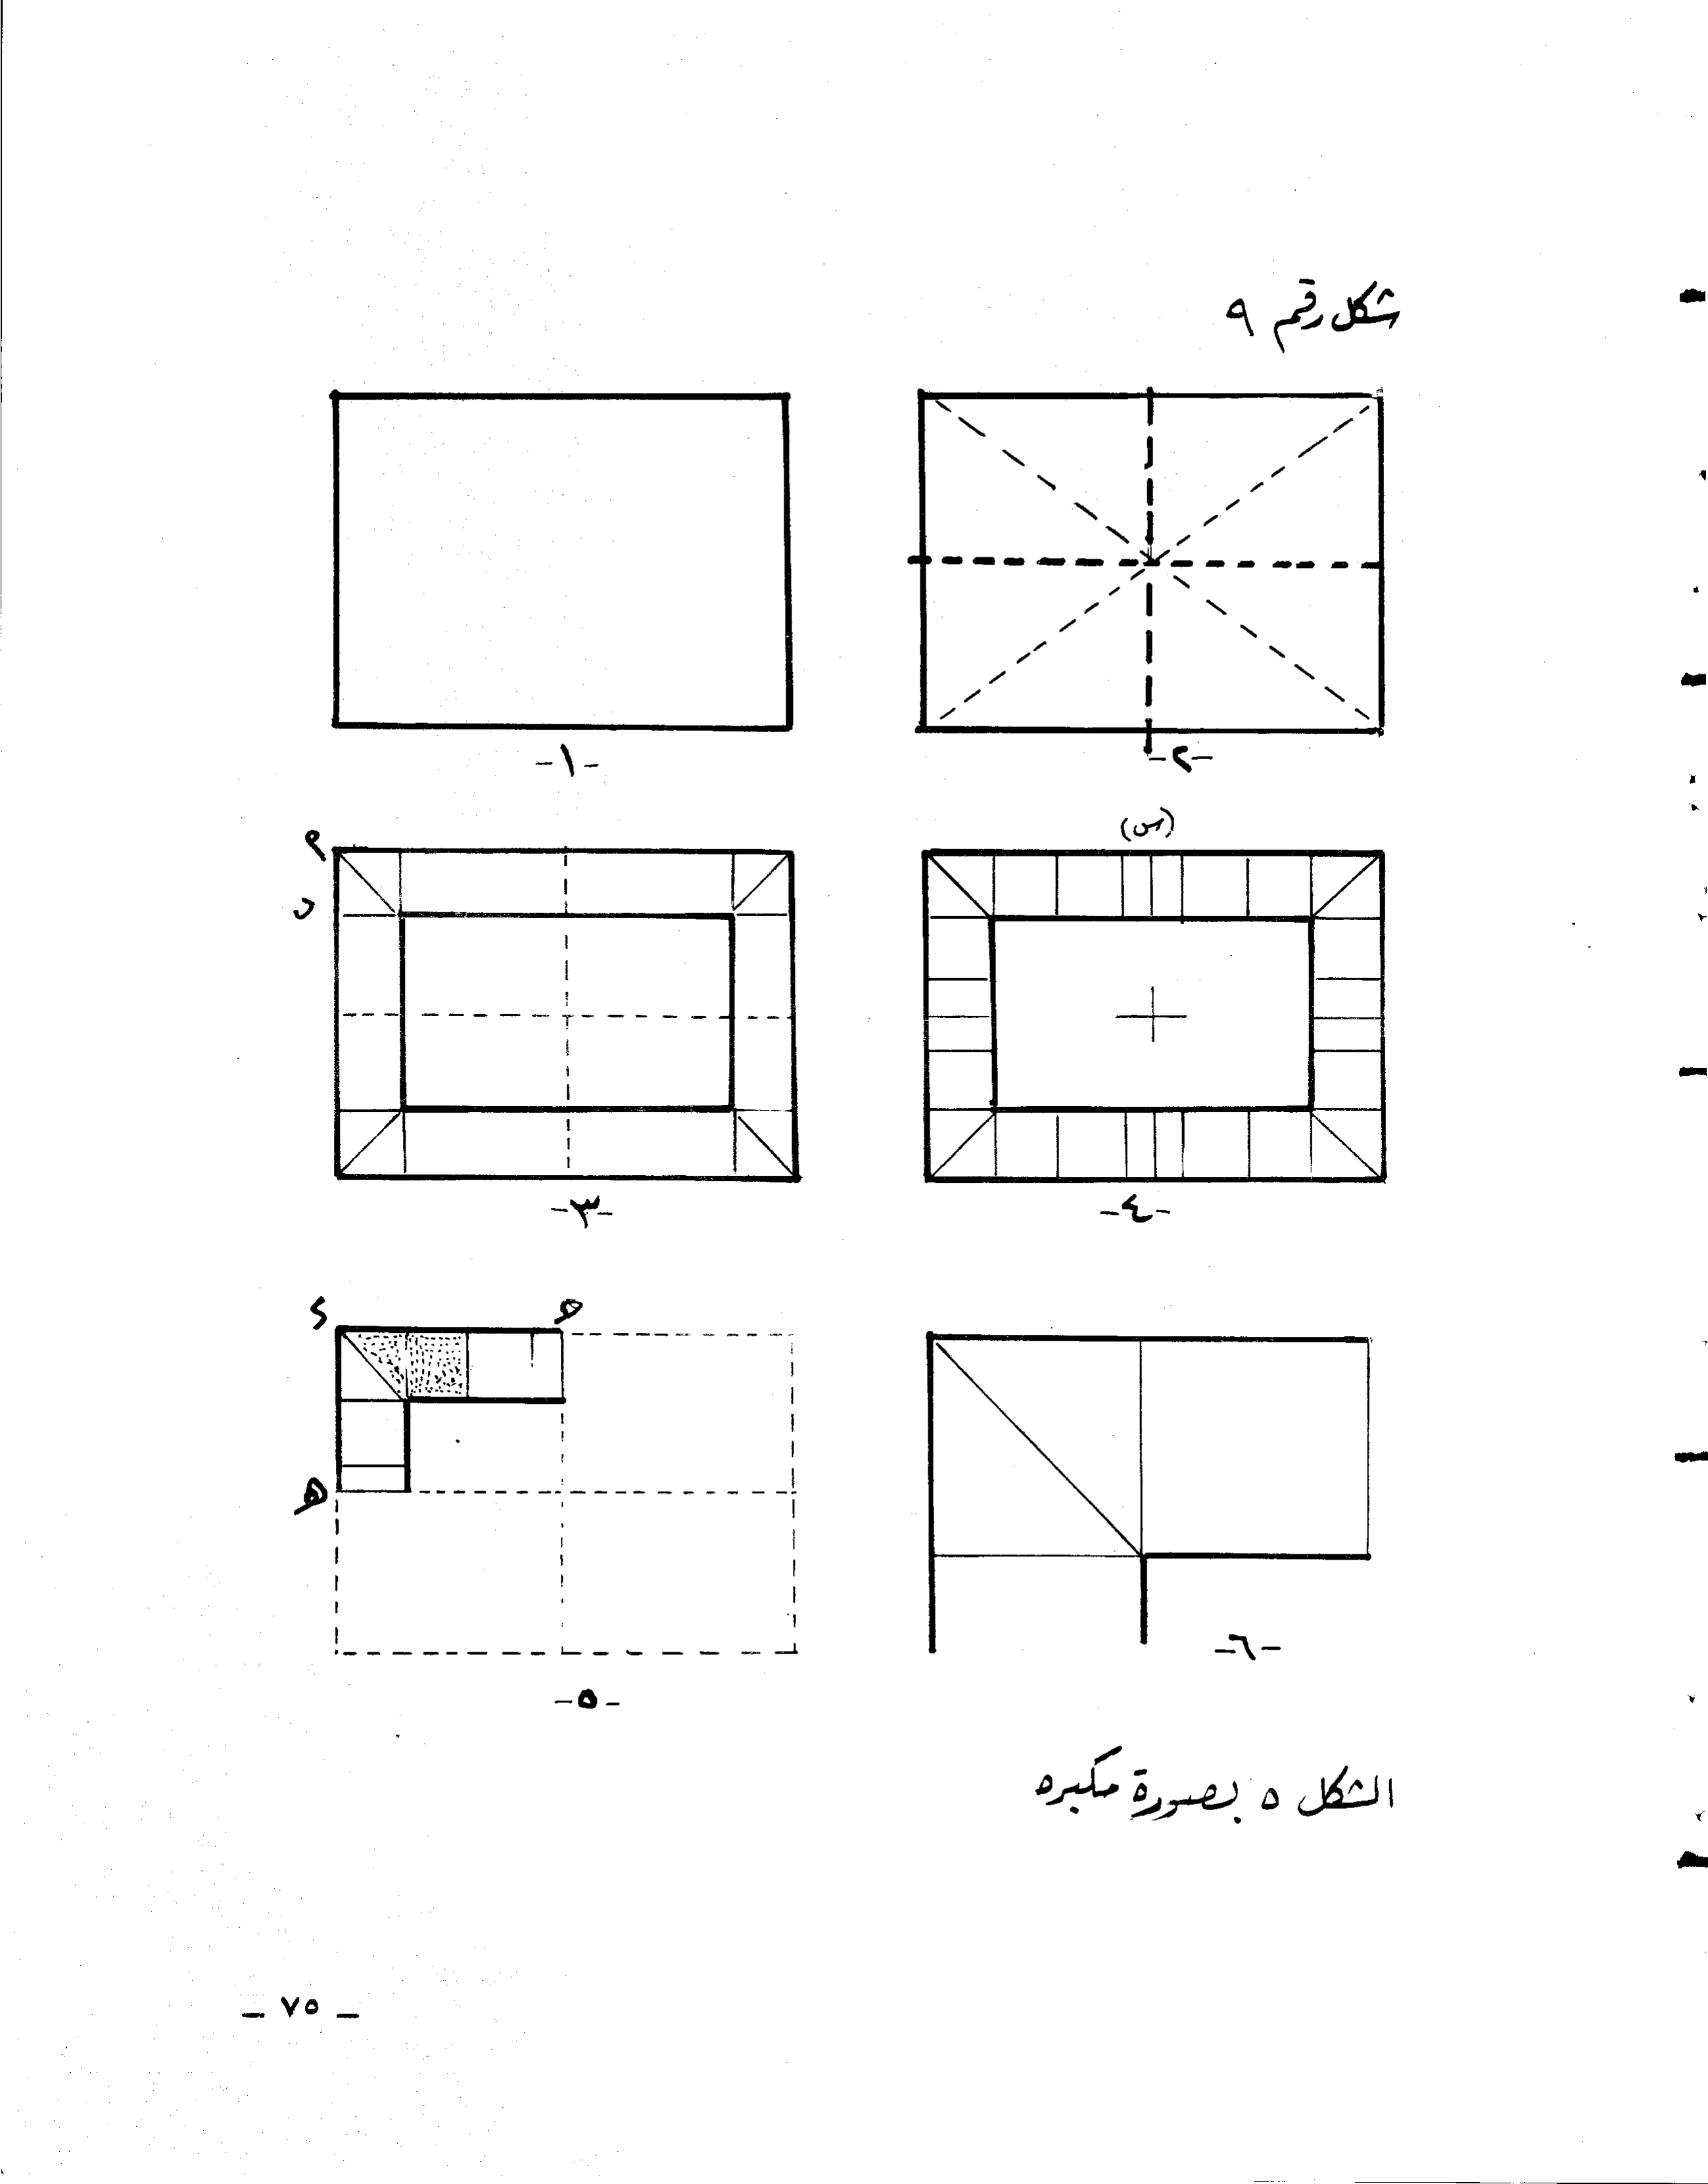 شكل رقم ٩
-١-
-٢-
م
ن
(س)
-٣-
-٤-
د
ه
ه
-٥-
-٦-
الشكل ٥ بصورة مكبره
- ٧٥ -